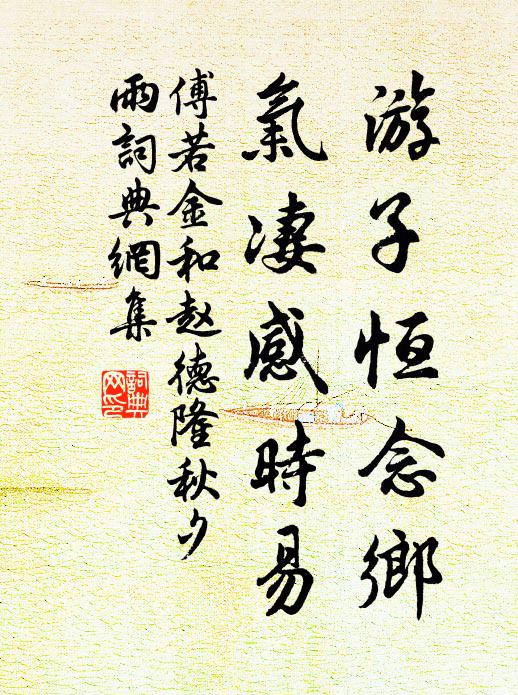 游子恒念鄉
氣凄感時易
傅若金和赵德隆秋夕
雨詞典網集
詞典
网印